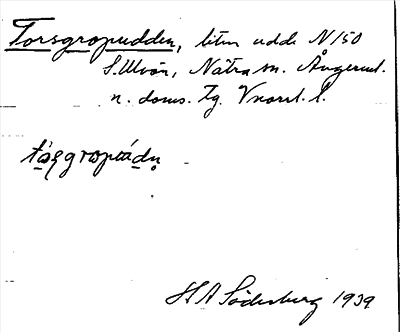 Torsgropudden, liten udde N/SO
S. Ulvön, Nätra sn. Ångerml.
n. doms. tg. Vnorrl. l.
H A Söderberg 1939